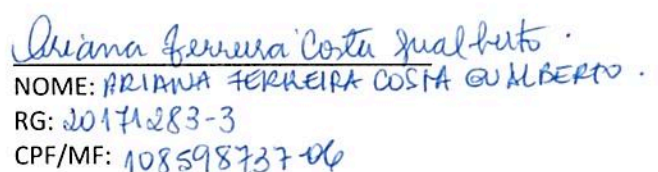 Ariana Ferreira Costa Gualberto.
NOME: ARIANA FERREIRA COSTA GUALBERTO.
RG: 20171283-3
CPF/MF: 108598737-06